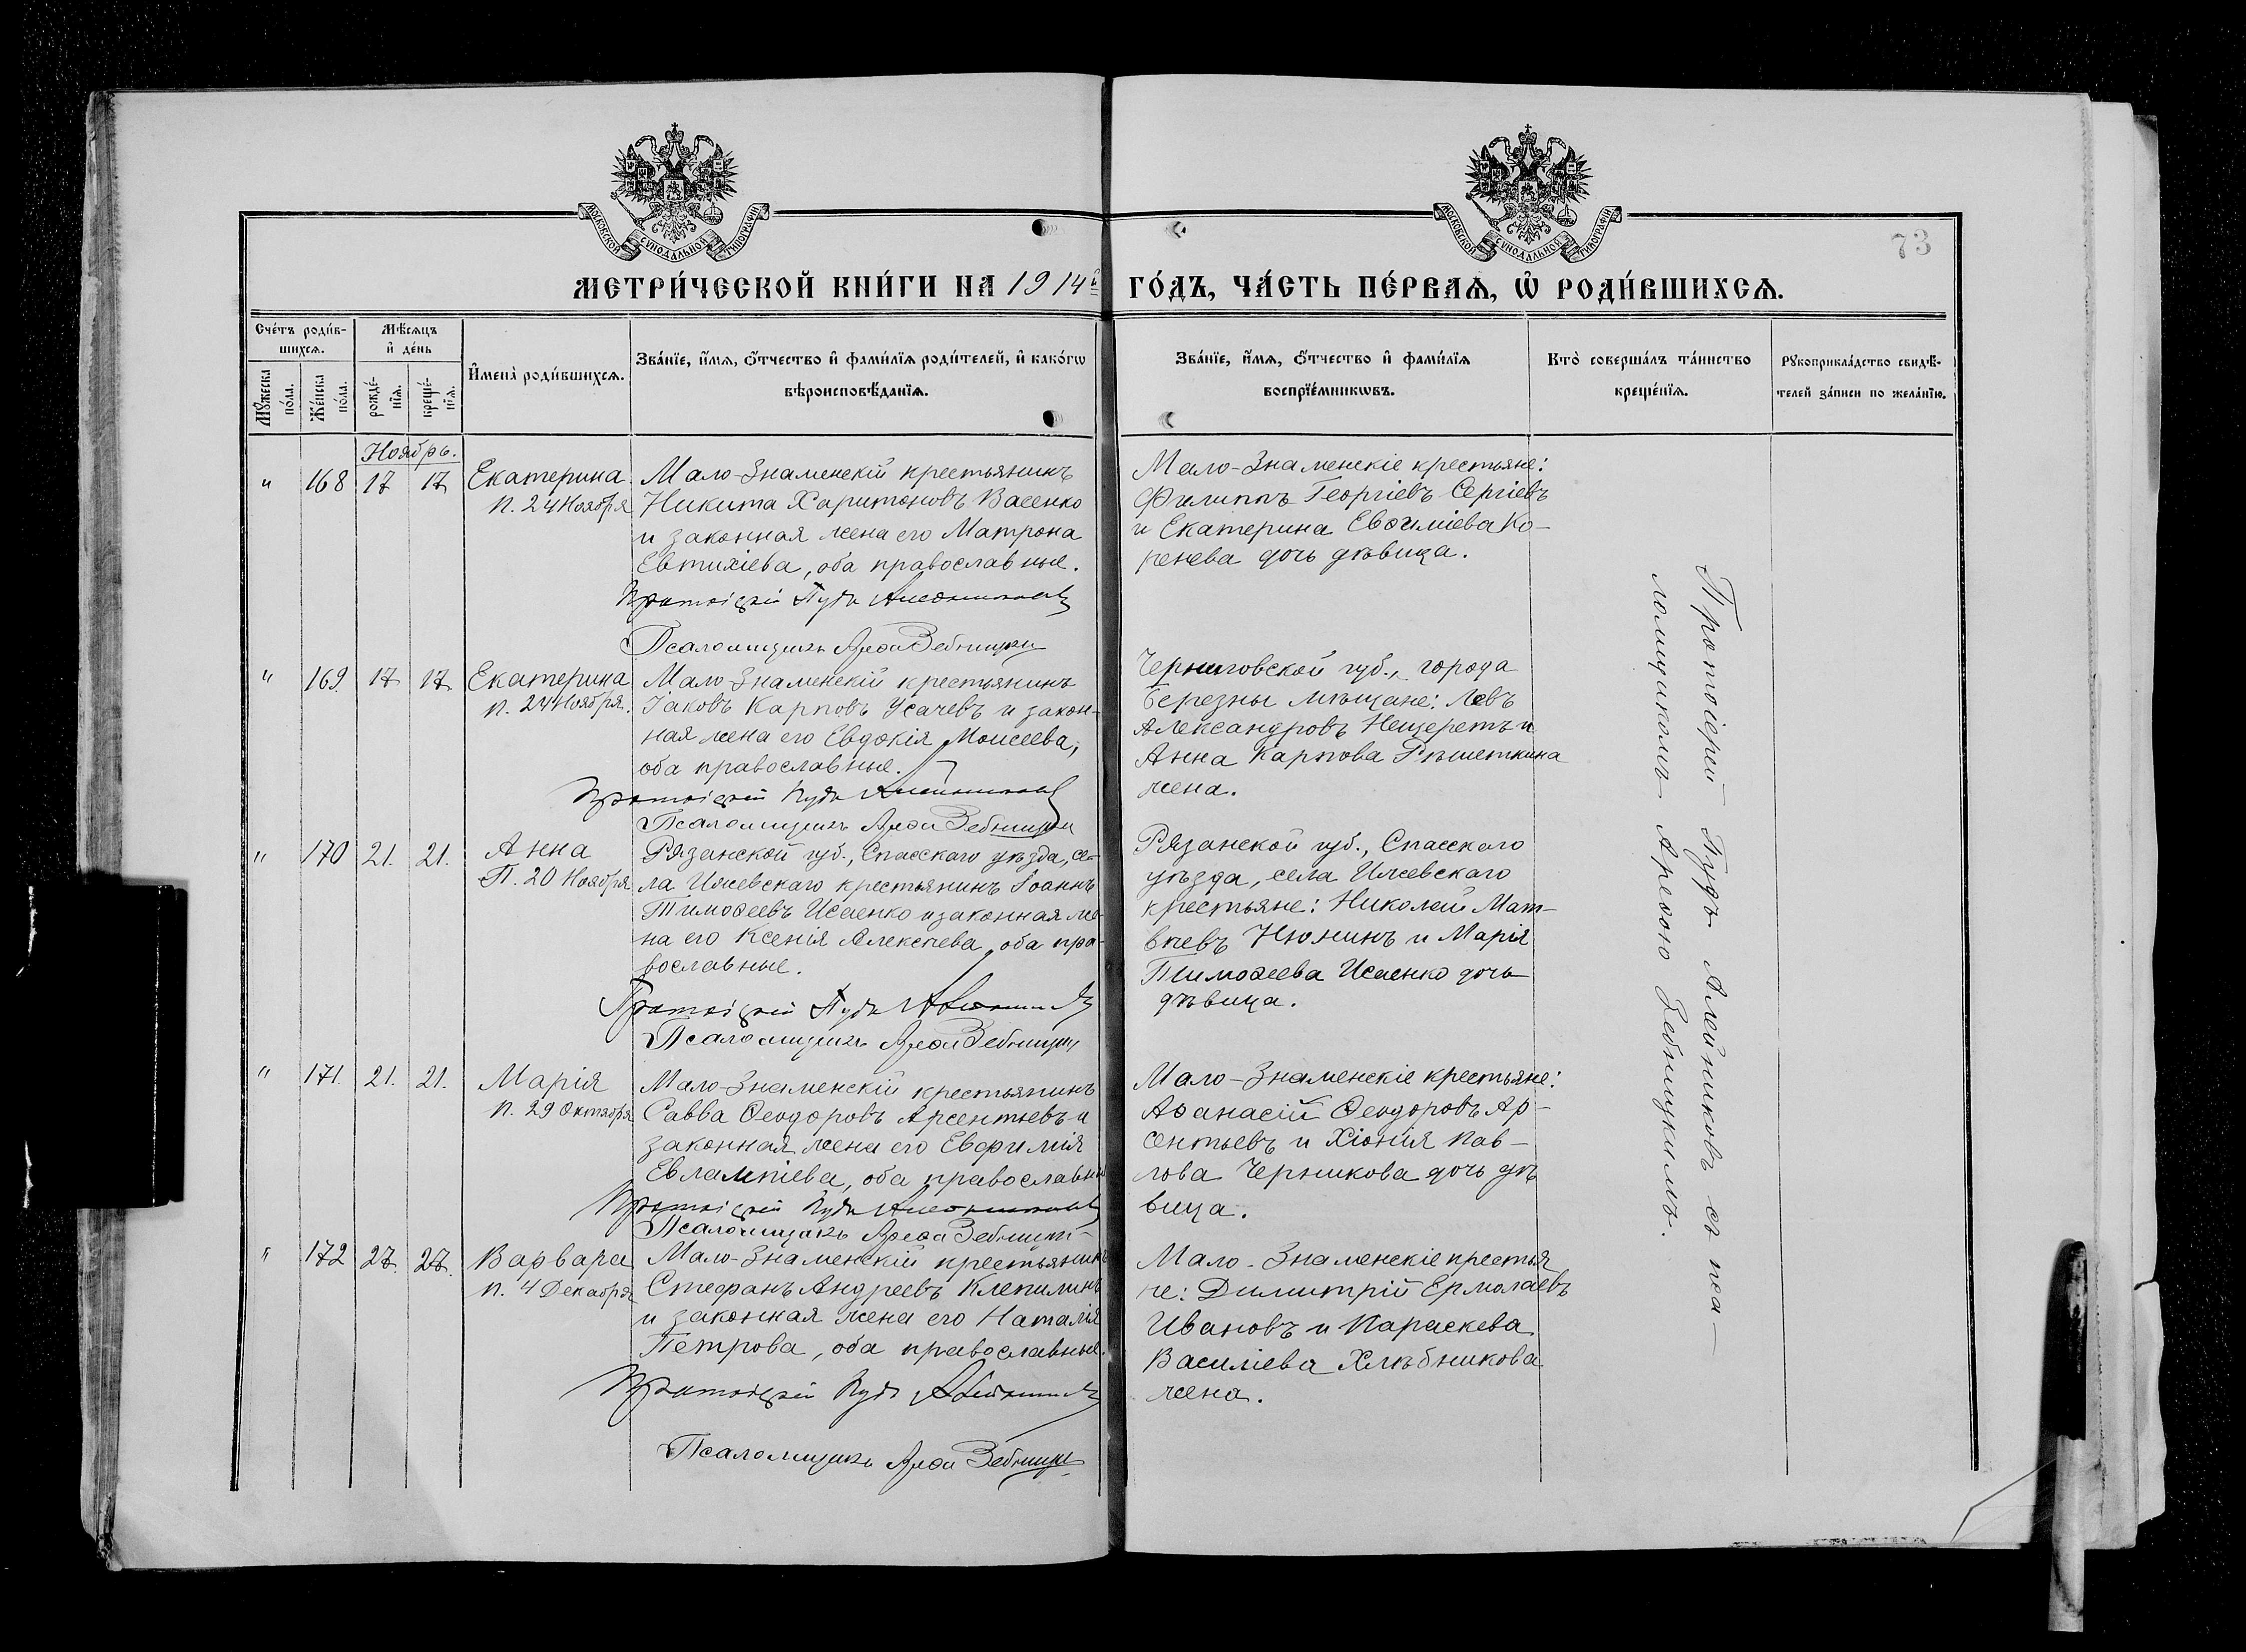 МОСКОВСКОЙ СѴНОДАЛЬНОЙ ТИПОГРАФІИ
МОСКОВСКОЙ СѴНОДАЛЬНОЙ ТИПОГРАФІИ
73
МЕТРИ́ЧЕСКОЙ КНИ́ГИ НА 1914й ГО́ДЪ, ЧА́СТЬ ПЕ́РВАѦ, Ѡ҆ РОДИ́ВШИХСѦ.
Сче́тъ роди́в-
шихсѧ.
Мꙋ́жеска по́ла.
Же́нска по́ла.
Мѣ́сѧцъ
и҆ де́нь
рожде́-
нїѧ.
креще́-
нїѧ.
И҆мена̀ роди́вшихсѧ.
Зва́нїе, и҆́мѧ, ѻ҆́тчество и҆ фами́лїѧ роди́телей, и҆ како́гѡ
вѣроисповѣ́данїѧ.
Зва́нїе, и҆́мѧ, ѻ҆́тчество и҆ фами́лїѧ
воспрїе́мникѡвъ.
Кто̀ соверша́лъ та́инство
креще́нїѧ.
Рꙋкоприкла́дство свидѣ́-
телей за́писи по жела́нїю.
Ноябрь.
" 168 17 17 Екатерина
п. 24 Ноября
Мало-Знаменскій крестьянинъ
Никита Харитоновъ Васенко
и законная жена его Матрона
Евтихіева, оба православные.
Протоіерей Пудъ Алейниковъ
Псаломщикъ Арефа Зебницкій
Мало-Знаменскіе крестьяне:
Филиппъ Георгіевъ Сергіевъ
и Екатерина Евѳиміева Ко-
ренева дочь дѣвица.
" 169 17 17 Екатерина
п. 24 Ноября.
Мало-Знаменскій крестьянинъ
Іаковъ Карповъ Усачевъ и закон-
ная жена его Евдокія Моисеева,
оба православные.
Протоіерей Пудъ Алейниковъ
Псаломщикъ Арефа Зебницкій
Черниговской губ., города
Березны мѣщане: Левъ
Александровъ Нещеретъ и
Анна Карпова Рѣшеткина
жена.
" 170 21. 21. Анна
П. 20 Ноября
Рязанской губ., Спасскаго уѣзда, се-
ла Ижевскаго крестьянинъ Іоаннъ
Тимоѳеевъ Исаенко и законная же-
на его Ксенія Алексѣева, оба пра-
вославные.
Протоіерей Пудъ Алейниковъ
Псаломщикъ Арефа Зебницкій
Рязанской губ., Спасскаго
уѣзда, села Ижевскаго
крестьяне: Николай Мат-
вѣевъ Нюнинъ и Марія
Тимоѳеева Исаенко дочь
дѣвица.
" 171. 21. 21. Марія
п. 29 Октября
Мало-Знаменскій крестьянинъ
Савва Ѳеодоровъ Арсентьевъ и
законная жена его Евфимія
Евлампіева, оба православные
Протоіерей Пудъ Алейниковъ
Псаломщикъ Арефа Зебницкій
Мало-Знаменскіе крестьяне:
Аѳанасій Ѳеодоровъ Ар-
сентьевъ и Хіонія Пав-
лова Черникова дочь дѣ
вица.
" 172 27. 27. Варвара
п. 4 Декабря
Мало-Знаменскій крестьянинъ
Стефанъ Андреевъ Клепилинъ
и законная жена его Наталія
Петрова, оба православные.
Протоіерей Пудъ Алейниковъ
Псаломщикъ Арефа Зебницкій
Мало-Знаменскіе крестья
не: Димитрій Ермолаевъ
Ивановъ и Параскева
Василіева Хлѣбникова
жена.
Протоіерей Пудъ Алейниковъ съ пса-
ломщикомъ Арефою Зебницкимъ.